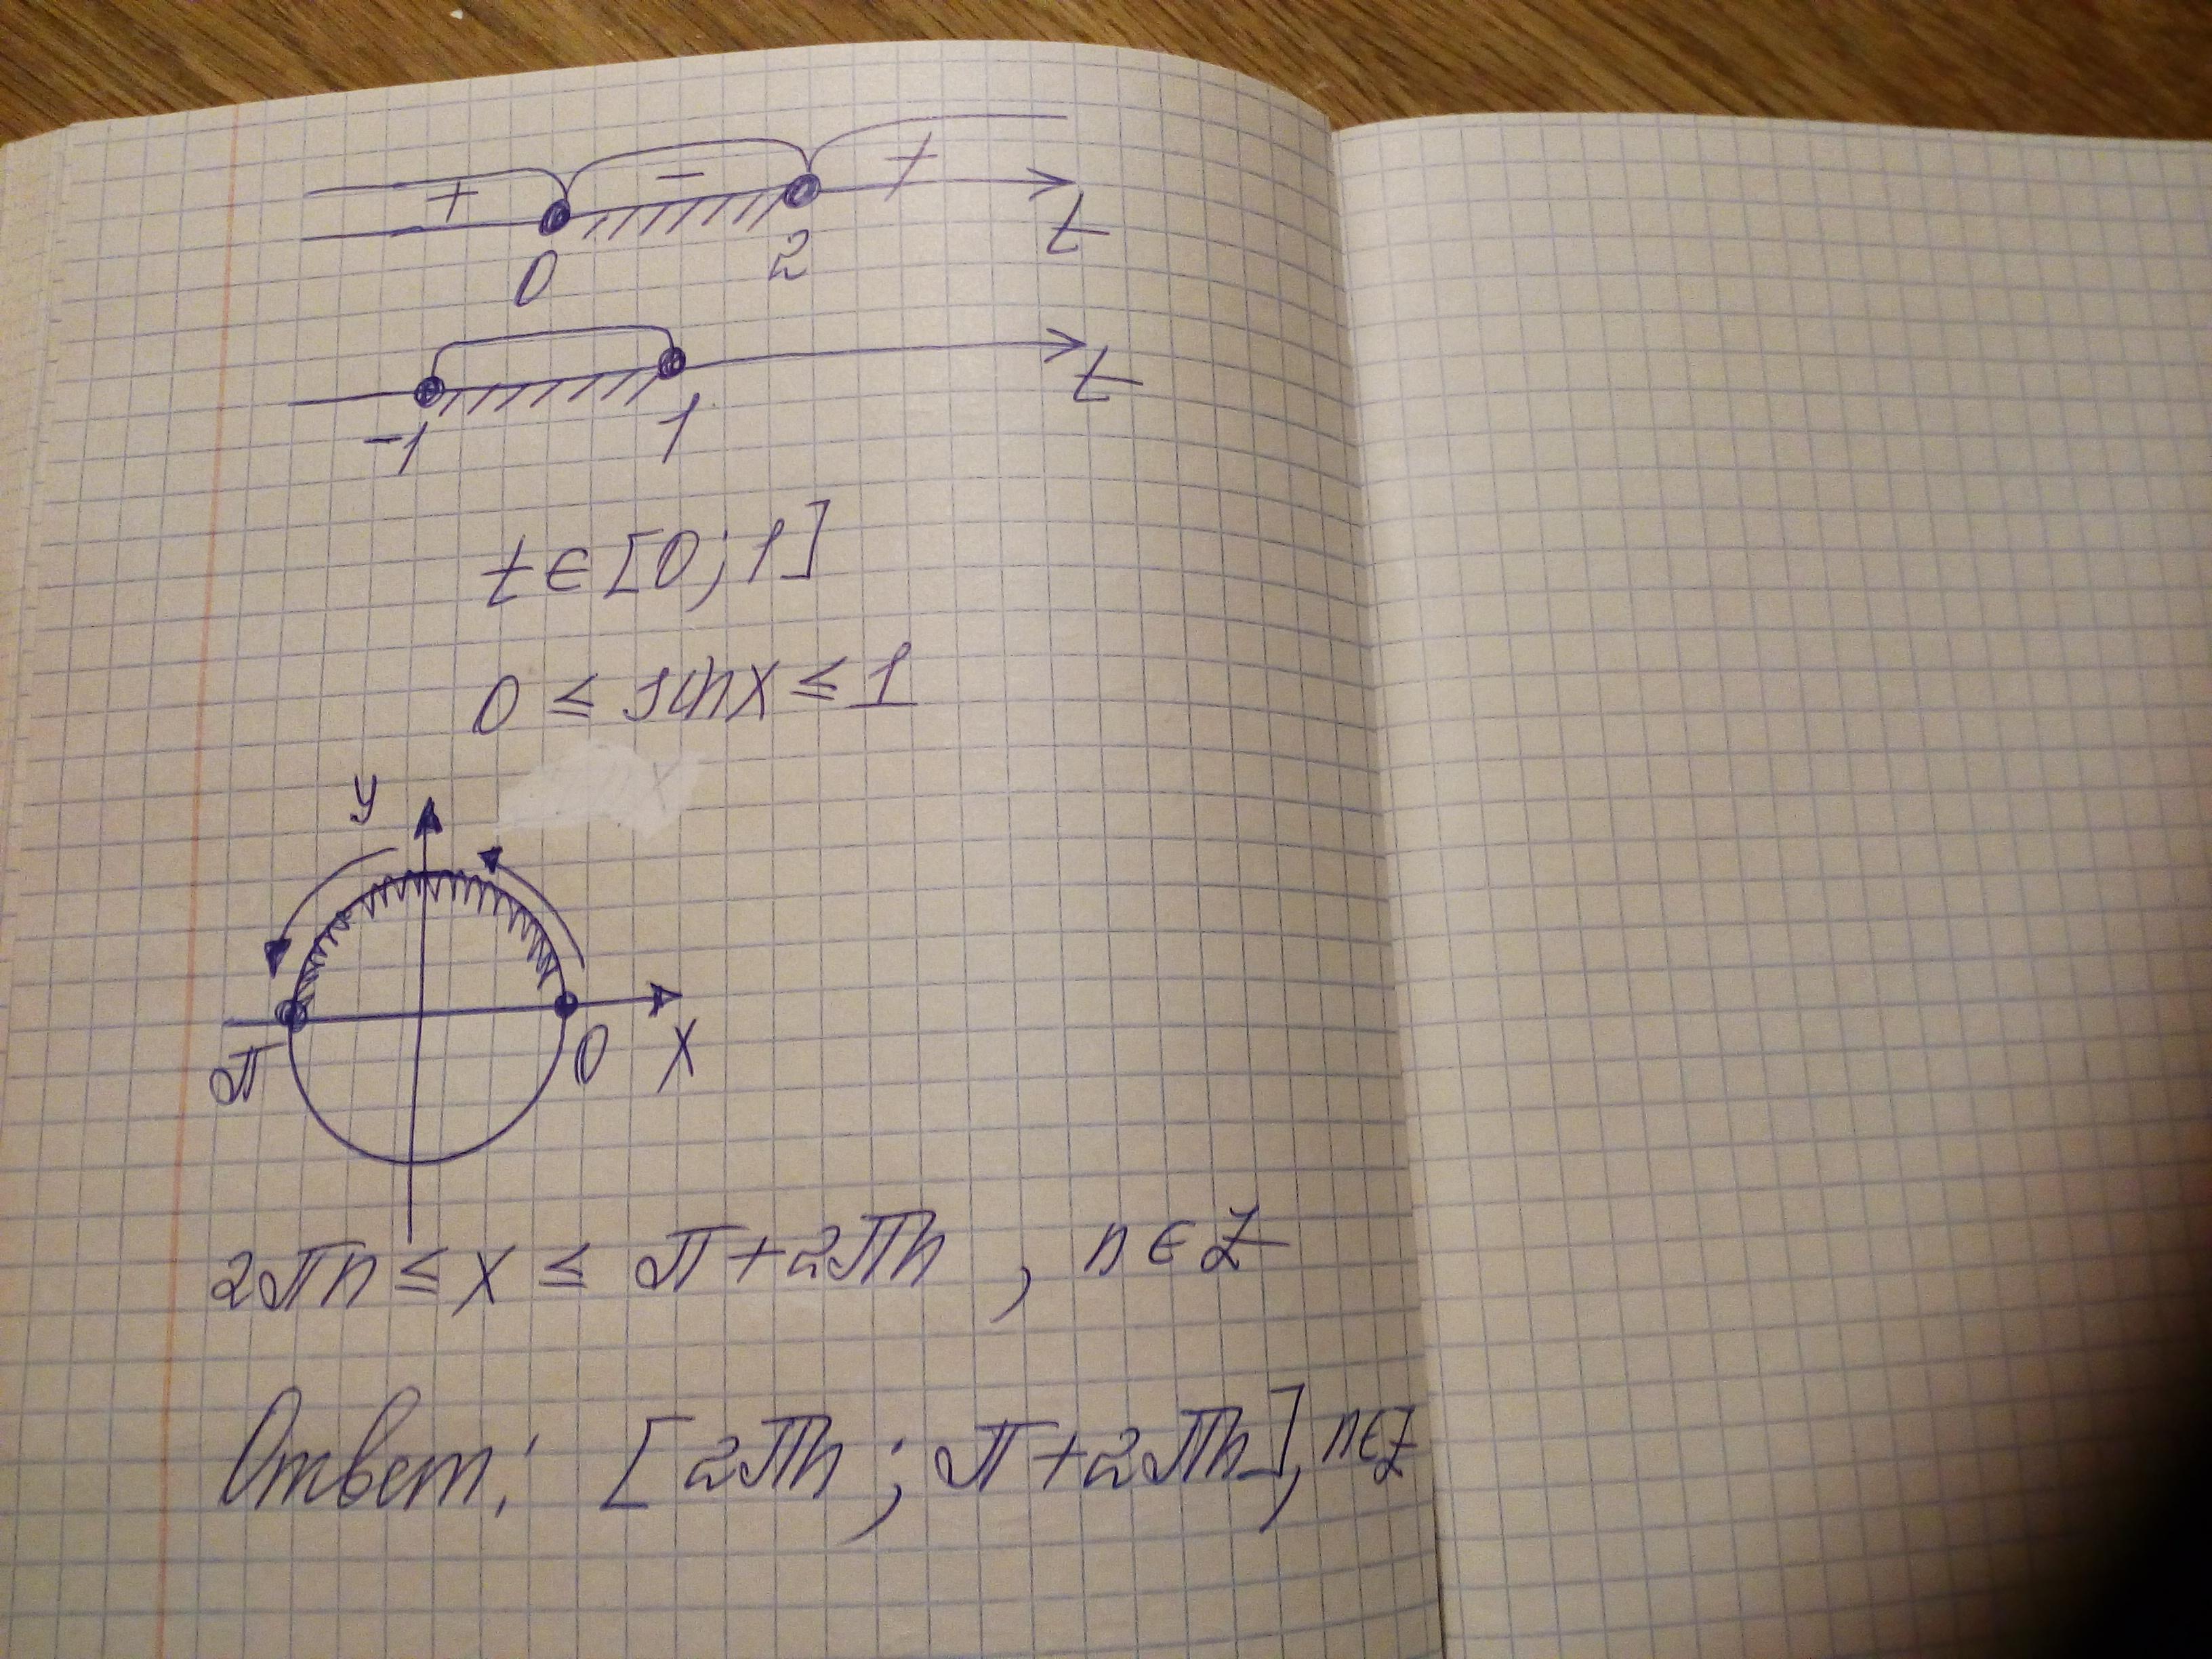 + − +
0 2 t
-1 1 t
t ∈ [0; 1]
0 ≤ sin x ≤ 1
y
π 0 x
2πn ≤ x ≤ π + 2πn , n ∈ Z
Ответ: [2πn ; π + 2πn], n ∈ Z